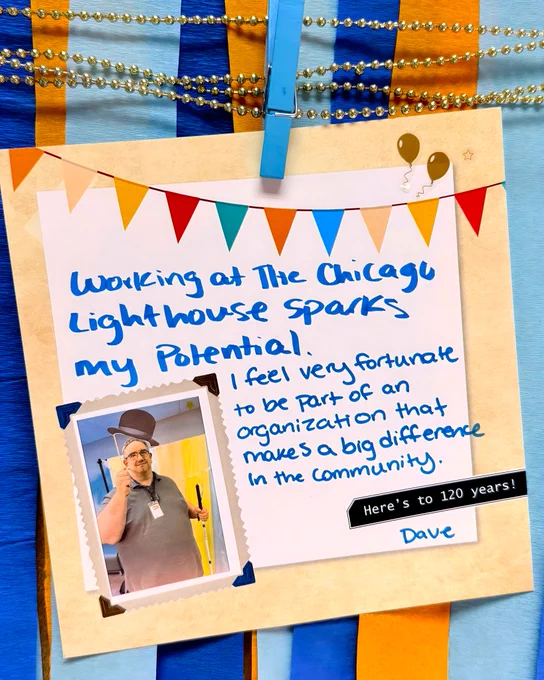 Working at The Chicago
Lighthouse sparks
my Potential.
I feel very fortunate
to be part of an
organization that
makes a big difference
in the community.
Here's to 120 years!
Dave